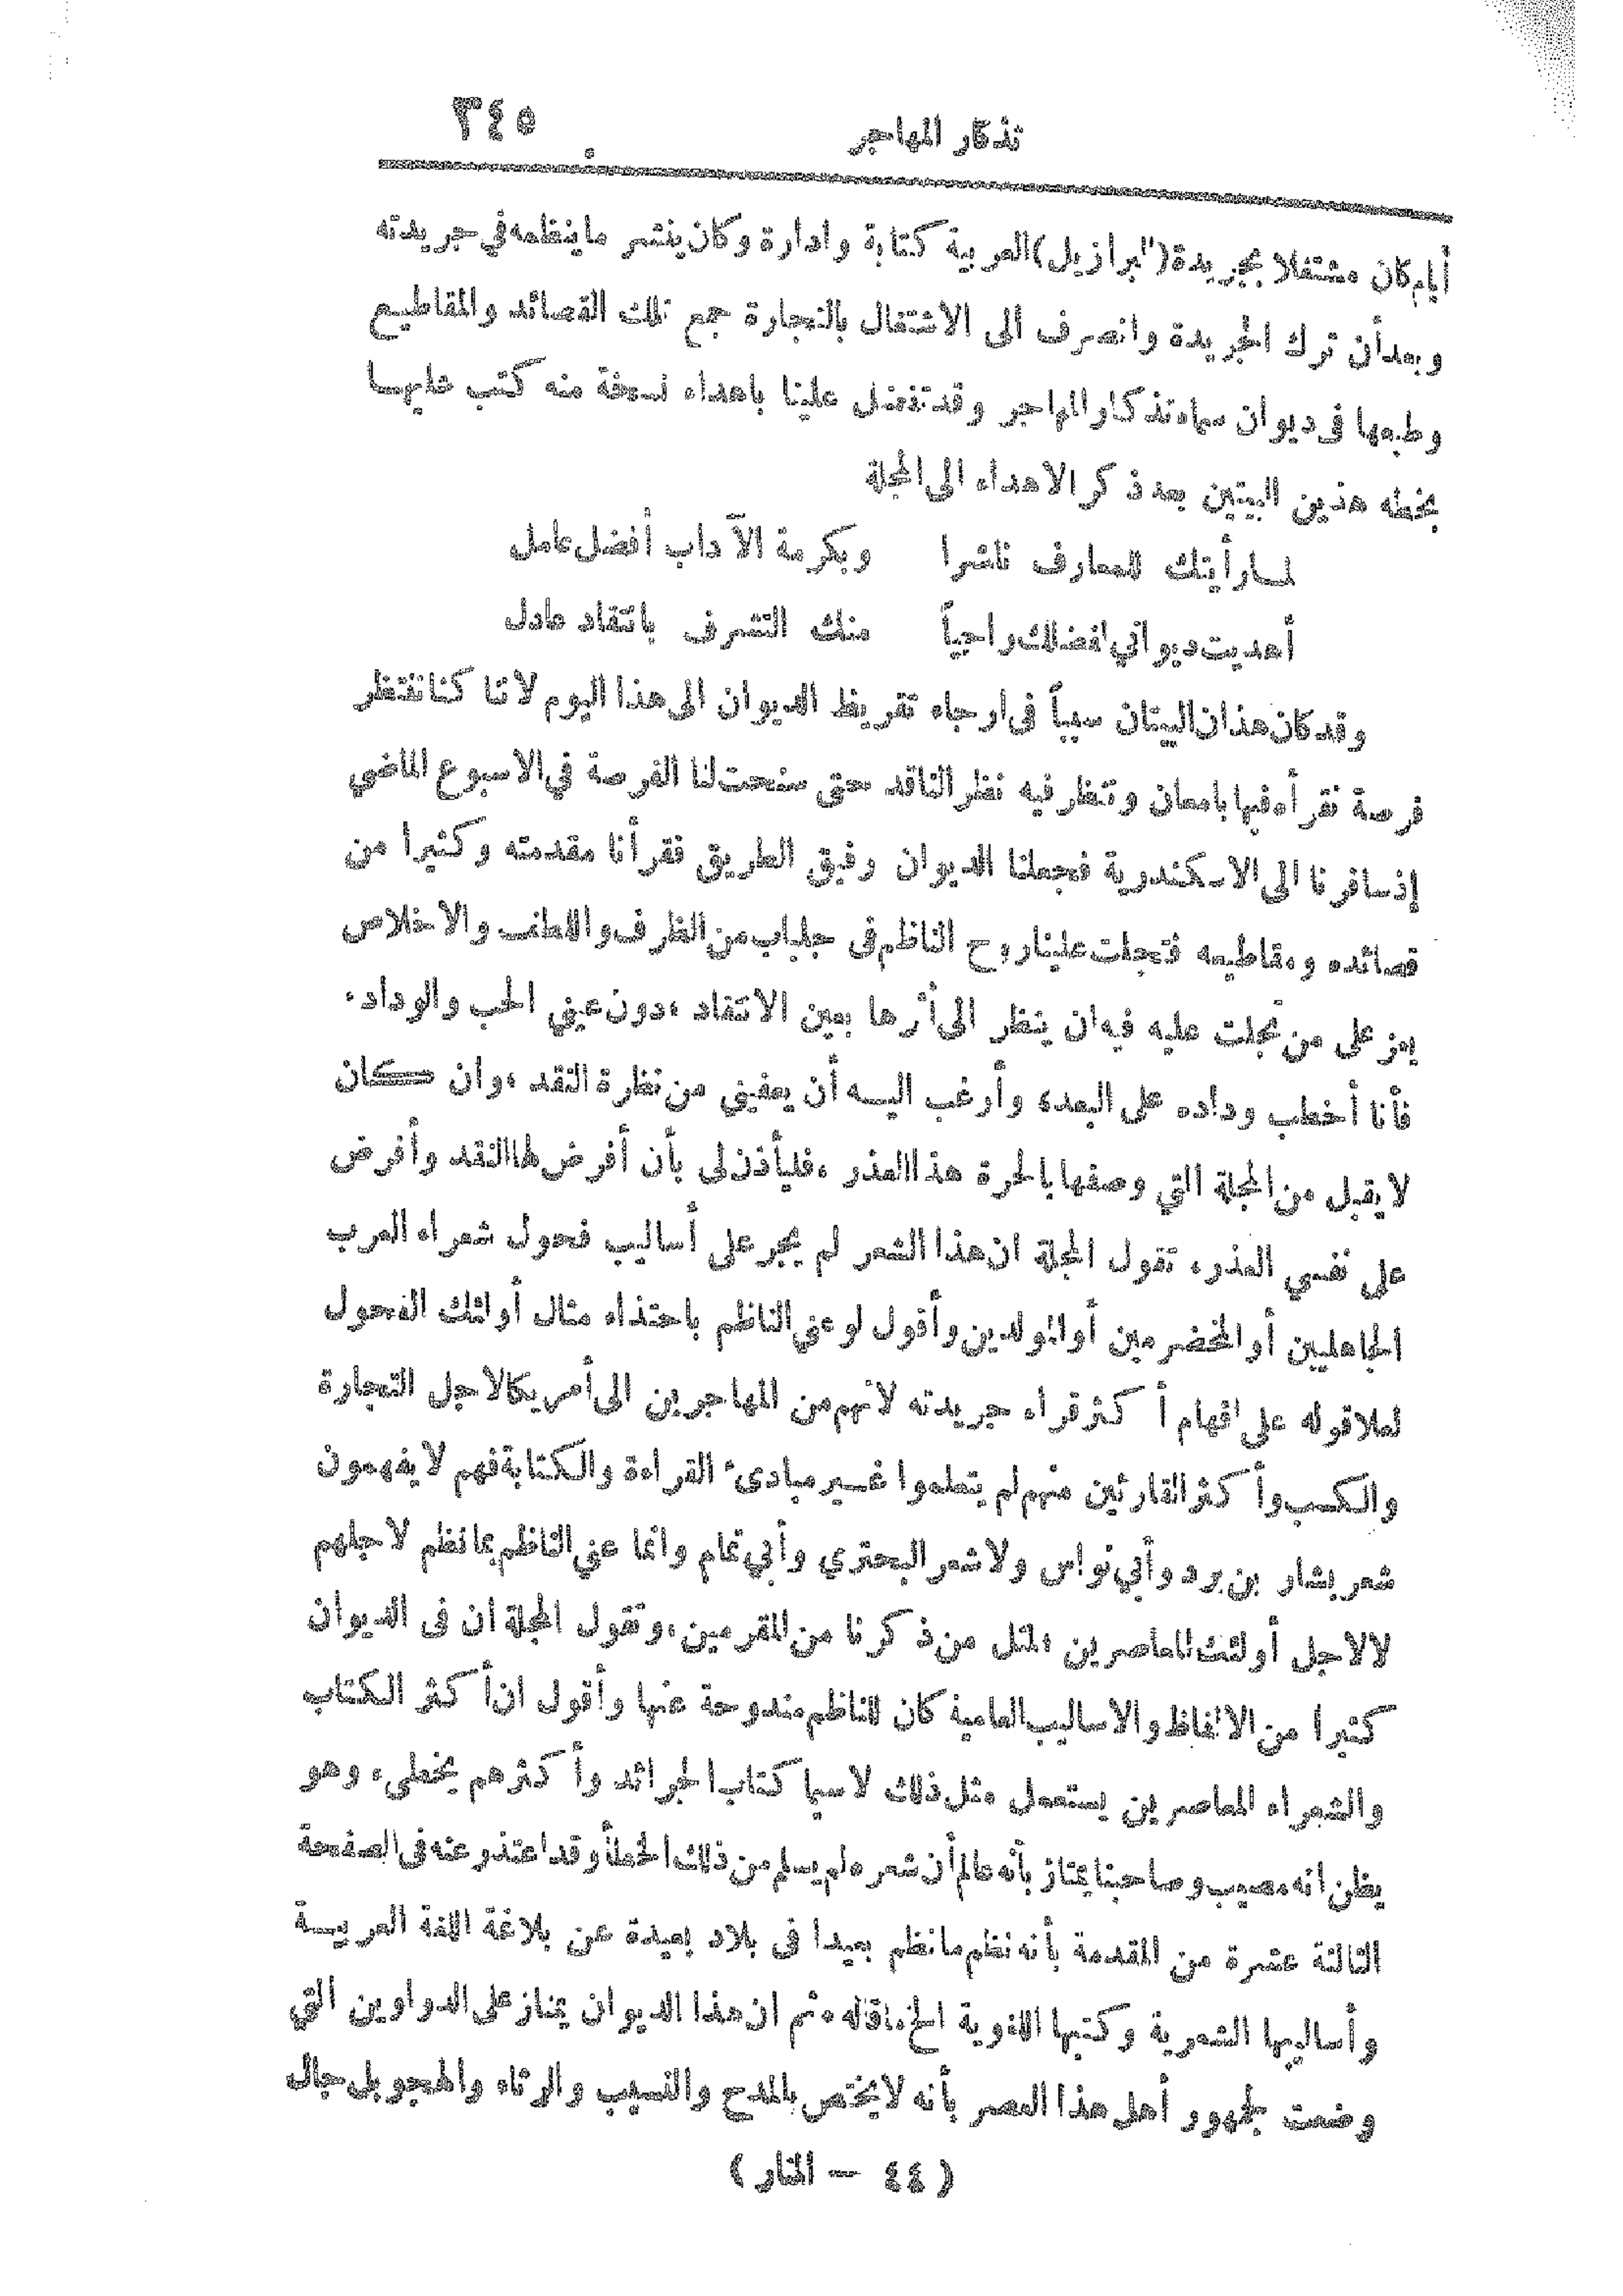 تذكار المهاجر ٣٤٥
أيام كان مشتغلا بجريدة (البرازيل) العربية كتابة وادارة وكان ينشر ما ينظمه في جريدته
وبعد أن ترك الجريدة وانصرف الى الاشتغال بالتجارة جمع تلك القصائد والمقاطيع
وطبعها في ديوان سماه تذكار المهاجر وقد تفضل علينا باهداء نسخة منه كتب عليها
بخطه هذين البيتين بعد ذكر الاهداء الى المجلة
لما رأيتك للمعارف ناشرا وبكرمة الآداب أفضل عامل
أهديت ديواني لفضلك راجياً منك التشرف بانتقاد عادل
وقد كان هذان البيتان سبباً في ارجاء تقريظ الديوان الى هذا اليوم لاننا كنا ننتظر
فرصة نقرأه فيها بامعان وننظر فيه نظر الناقد حتى سنحت لنا الفرصة في الاسبوع الماضي
إذ سافرنا الى الاسكندرية فجعلنا الديوان رفيق الطريق فقرأنا مقدمته وكثيرا من
قصائده ومقاطيعه فتجلت علينا روح الناظم في جلباب من الظرف واللطف والاخلاص
يعز على من تجلت عليه فيه ان ينظر الى أثرها بعين الانتقاد ، دون عيني الحب والوداد ،
فأنا أخطب وداده على البعد ، وأرغب اليه أن يعفيني من نظرة النقد ، وان كان
لا يقبل من المجلة التي وصفها بالحرة هذا العذر ، فليأذن لي بأن أفرض لها النقد وأفرض
على نفسي العذر ، تقول المجلة ان هذا الشعر لم يجر على أساليب فحول شعراء العرب
الجاهليين أو المخضرمين أو المولدين وأقول لو عني الناظم باحتذاء مثال أولئك الفحول
لعلا قوله على افهام أكثر قراء جريدته لانهم من المهاجرين الى أمريكا لاجل التجارة
والكسب وأكثر القارئين منهم لم يتعلموا غير مبادئ القراءة والكتابة فهم لا يفهمون
شعر بشار بن برد وأبي نواس ولا شعر البحتري وأبي تمام وانما عني الناظم بما نظم لاجلهم
لا لاجل أولئك المعاصرين لمثل من ذكرنا من المقرمين ، وتقول المجلة ان في الديوان
كثيرا من الالفاظ والاساليب العامية كان للناظم مندوحة عنها وأقول ان أكثر الكتاب
والشعراء المعاصرين يستعمل مثل ذلك لا سيما كتاب الجرائد وأكثرهم يخطئ وهو
يظن انه مصيب وصاحبنا يمتاز بأنه عالم أن شعره لم يسلم من ذلك الخطأ وقد اعتذر عنه في الصفحة
الثالثة عشرة من المقدمة بأنه نظم ما نظم بعيدا في بلاد بعيدة عن بلاغة اللغة العربية
وأساليبها الشعرية وكتبها اللغوية الخ ما قاله ، ثم ان هذا الديوان يمتاز على الدواوين التي
وضعت لجمهور أهل هذا العصر بأنه لا يختص بالمدح والنسيب والرثاء والهجو بل جال
(٤٤ – المنار)